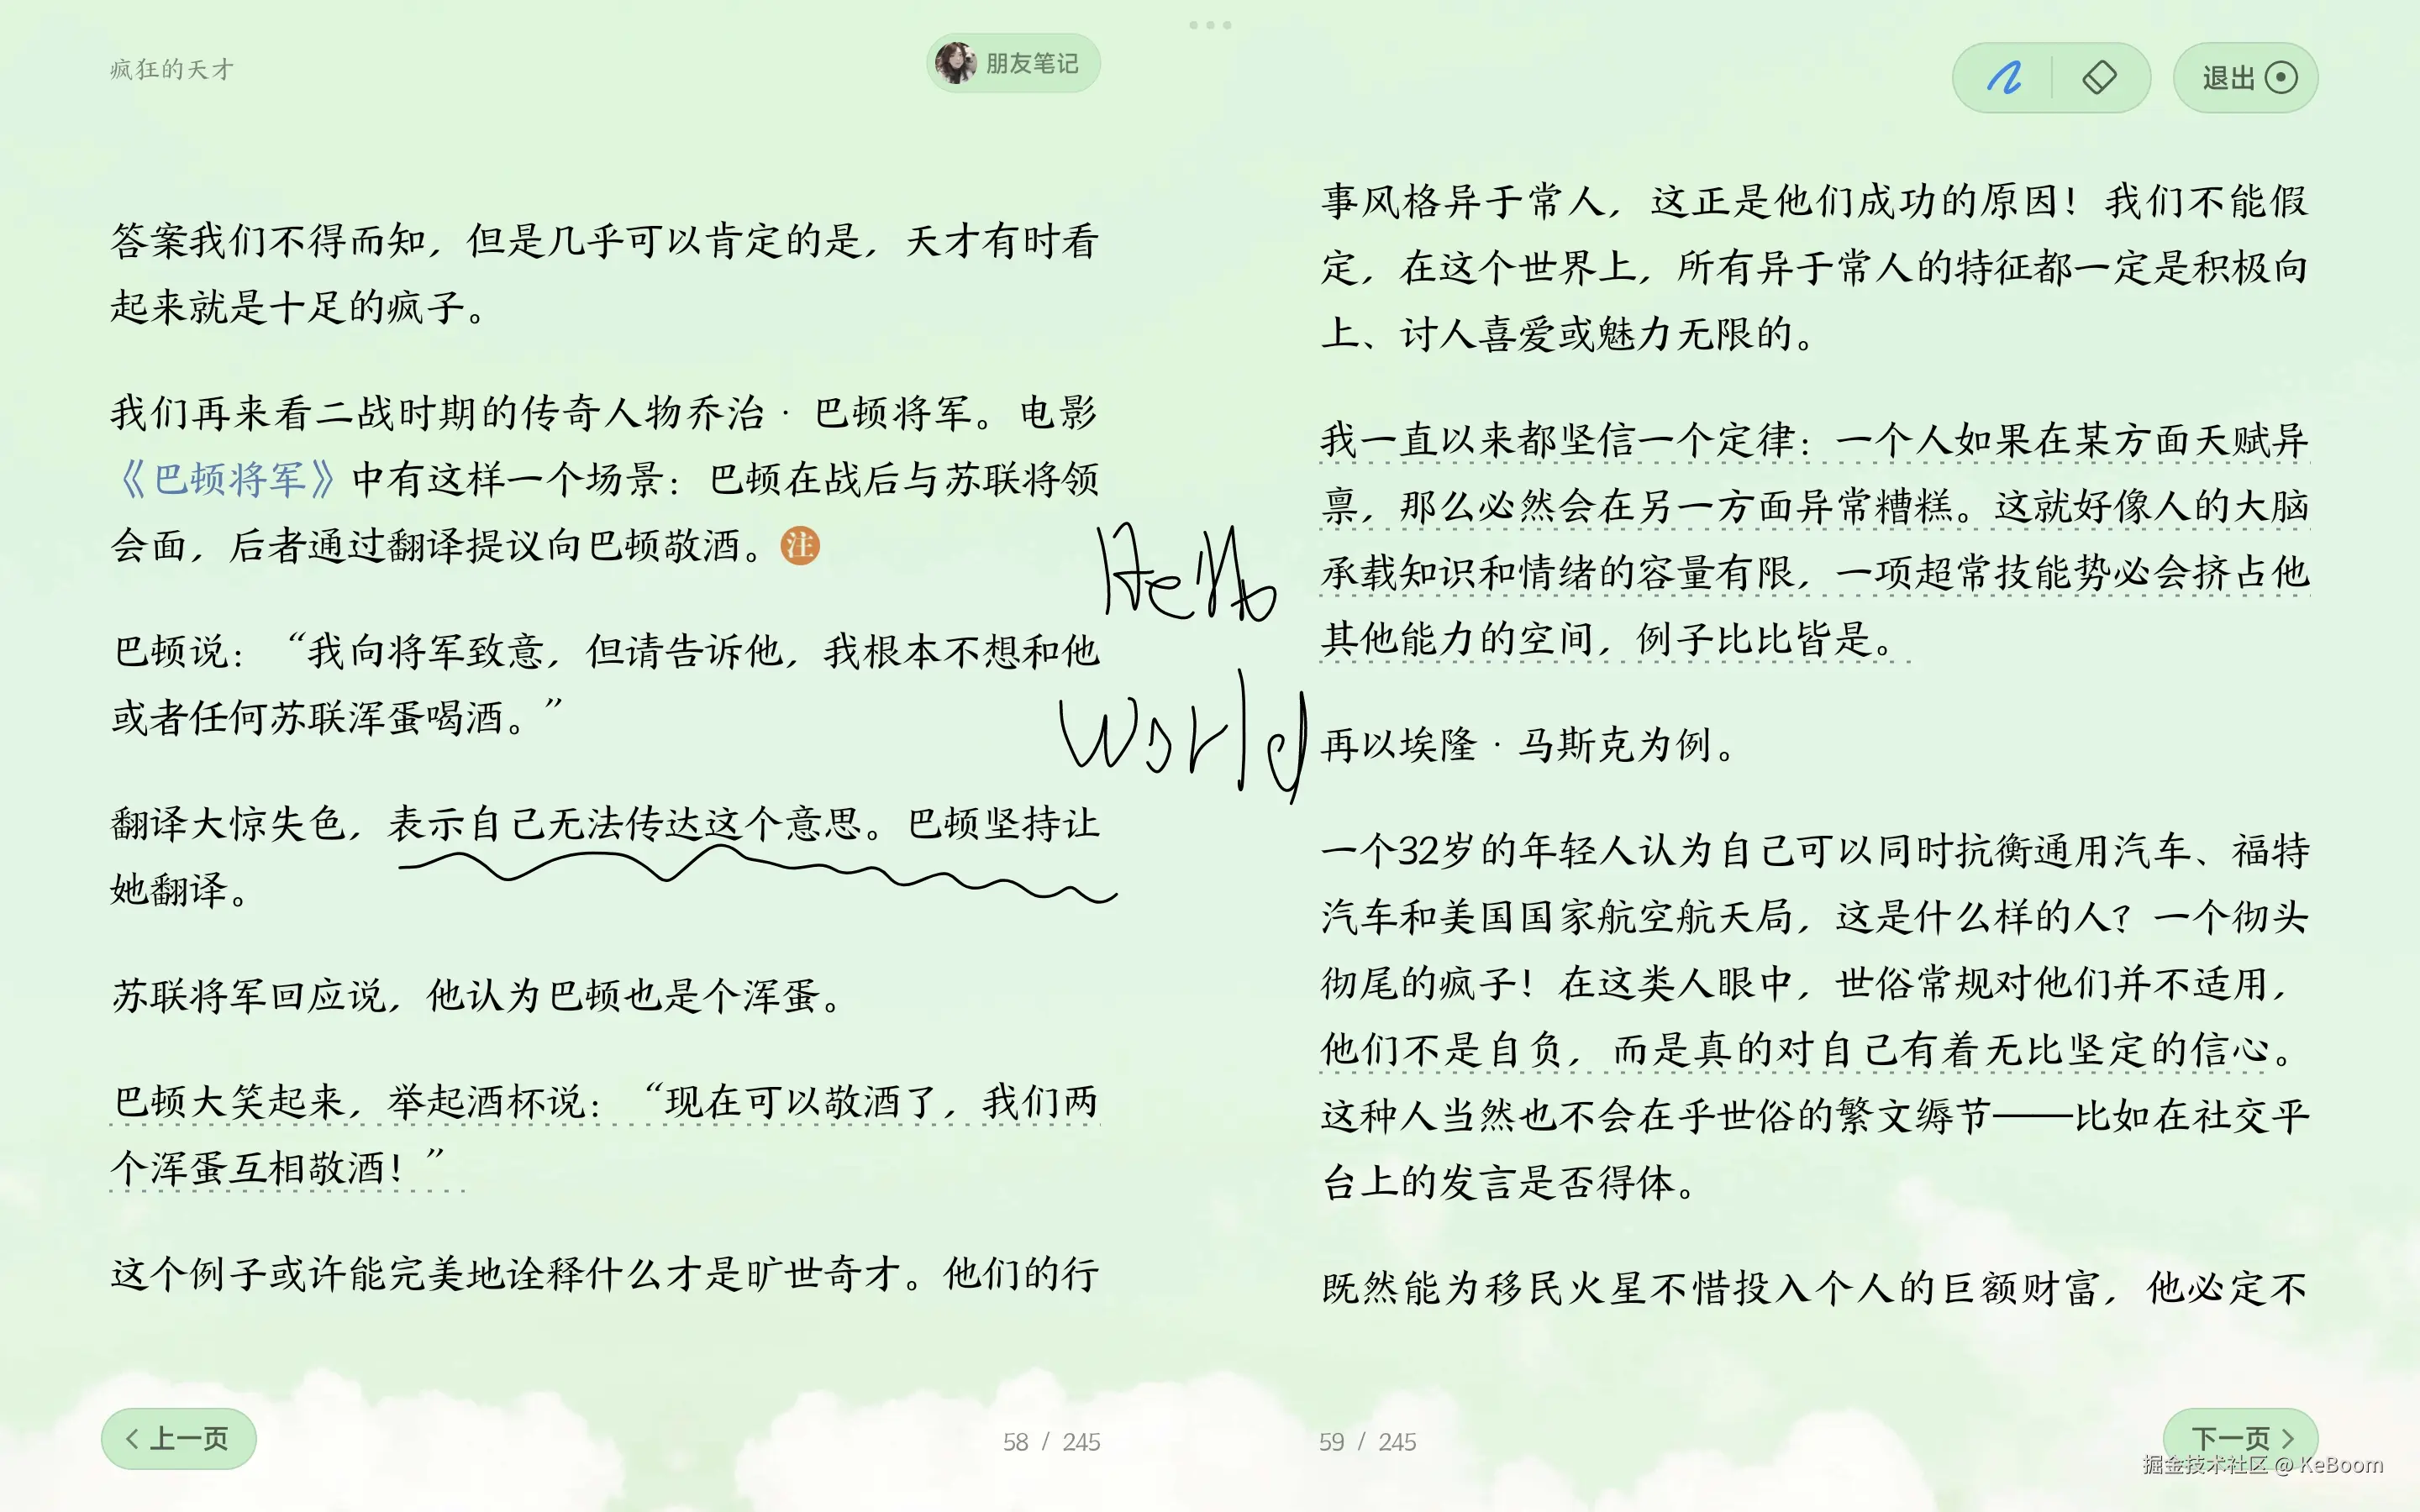 疯狂的天才
朋友笔记
退出
答案我们不得而知，但是几乎可以肯定的是，天才有时看
起来就是十足的疯子。
我们再来看二战时期的传奇人物乔治·巴顿将军。电影
《巴顿将军》中有这样一个场景：巴顿在战后与苏联将领
会面，后者通过翻译提议向巴顿敬酒。注
巴顿说：“我向将军致意，但请告诉他，我根本不想和他
或者任何苏联浑蛋喝酒。”
翻译大惊失色，表示自己无法传达这个意思。巴顿坚持让
她翻译。
苏联将军回应说，他认为巴顿也是个浑蛋。
巴顿大笑起来，举起酒杯说：“现在可以敬酒了，我们两
个浑蛋互相敬酒！”
这个例子或许能完美地诠释什么才是旷世奇才。他们的行
Hello
World
事风格异于常人，这正是他们成功的原因！我们不能假
定，在这个世界上，所有异于常人的特征都一定是积极向
上、讨人喜爱或魅力无限的。
我一直以来都坚信一个定律：一个人如果在某方面天赋异
禀，那么必然会在另一方面异常糟糕。这就好像人的大脑
承载知识和情绪的容量有限，一项超常技能势必会挤占他
其他能力的空间，例子比比皆是。
再以埃隆·马斯克为例。
一个32岁的年轻人认为自己可以同时抗衡通用汽车、福特
汽车和美国国家航空航天局，这是什么样的人？一个彻头
彻尾的疯子！在这类人眼中，世俗常规对他们并不适用，
他们不是自负，而是真的对自己有着无比坚定的信心。
这种人当然也不会在乎世俗的繁文缛节——比如在社交平
台上的发言是否得体。
既然能为移民火星不惜投入个人的巨额财富，他必定不
上一页
58 / 245
59 / 245
下一页
掘金技术社区 @ KeBoom